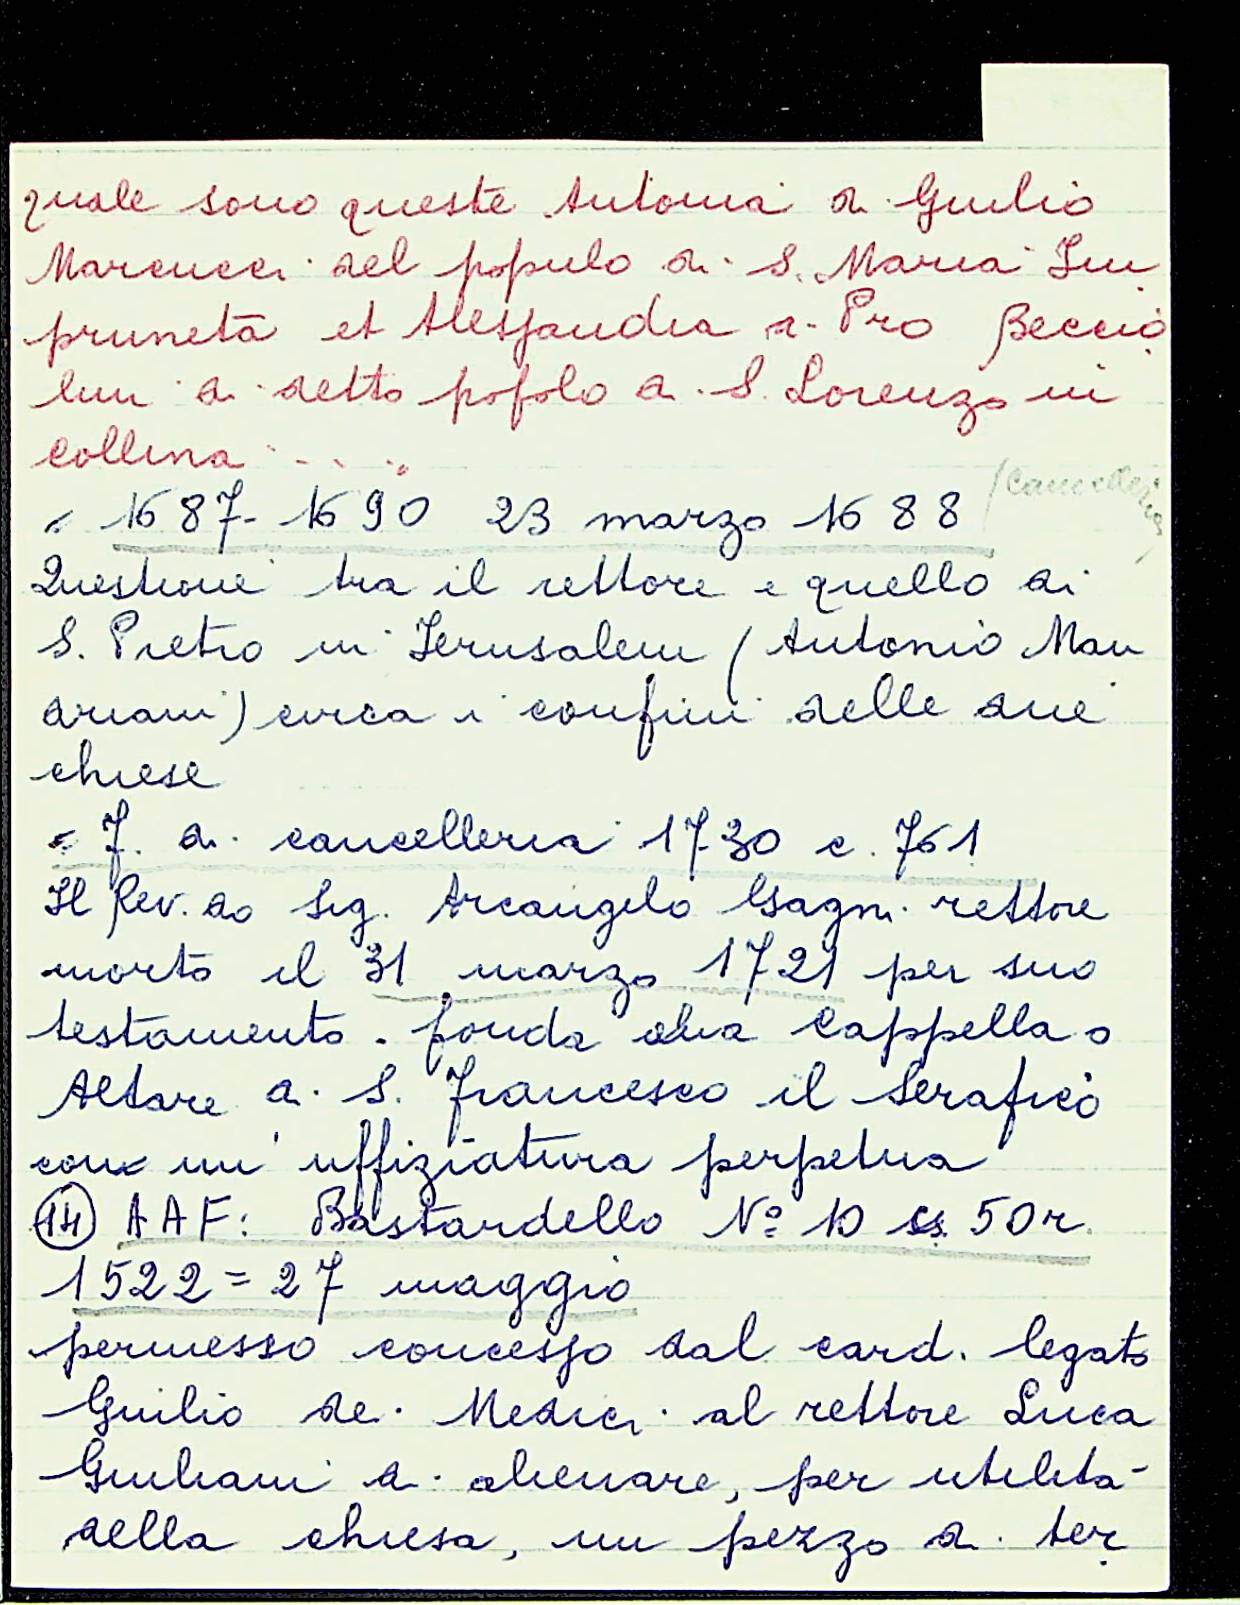 quale sono queste Antonia di Giulio
Marcucci del populo di S. Maria Im
pruneta et Alessandra di Pro Beccio
lini di detto popolo di S. Lorenzo in
collina . . . .
" 1687-1690 23 marzo 1688 (Cancelleria)
Questione tra il rettore e quello di
S. Pietro in Jerusalem (Antonio Man
driani) circa i confini delle due
chiese
" f. di cancelleria 1730 c. 761
Il Rev.do Sig. Arcangelo Gsagni rettore
morto il 31 marzo 1721 per suo
testamento. fonda una Cappella o
Altare a S. Francesco il Serafico
con un' uffiziatura perpetua
(14) AAF: Bastardello Nº 10 cs. 50r.
1522 = 27 maggio
permesso concesso dal card. legato
Giulio de Medici al rettore Luca
Giuliani di alienare, per utilità
della chiesa, un pezzo di ter